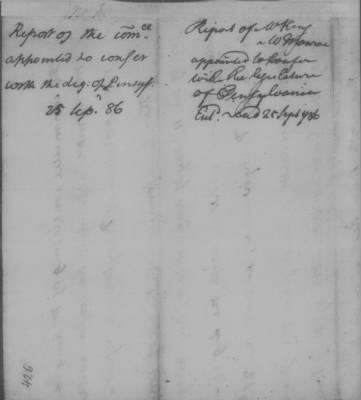 Report of the comee
appointed to confer
with the Leg: of Pensylv.
25 Sep. 86
Report of Mr King
& Mr Monroe
appointed to confer
with the legislature
of Pensylvania
Entd read 25 Sept 1786
426